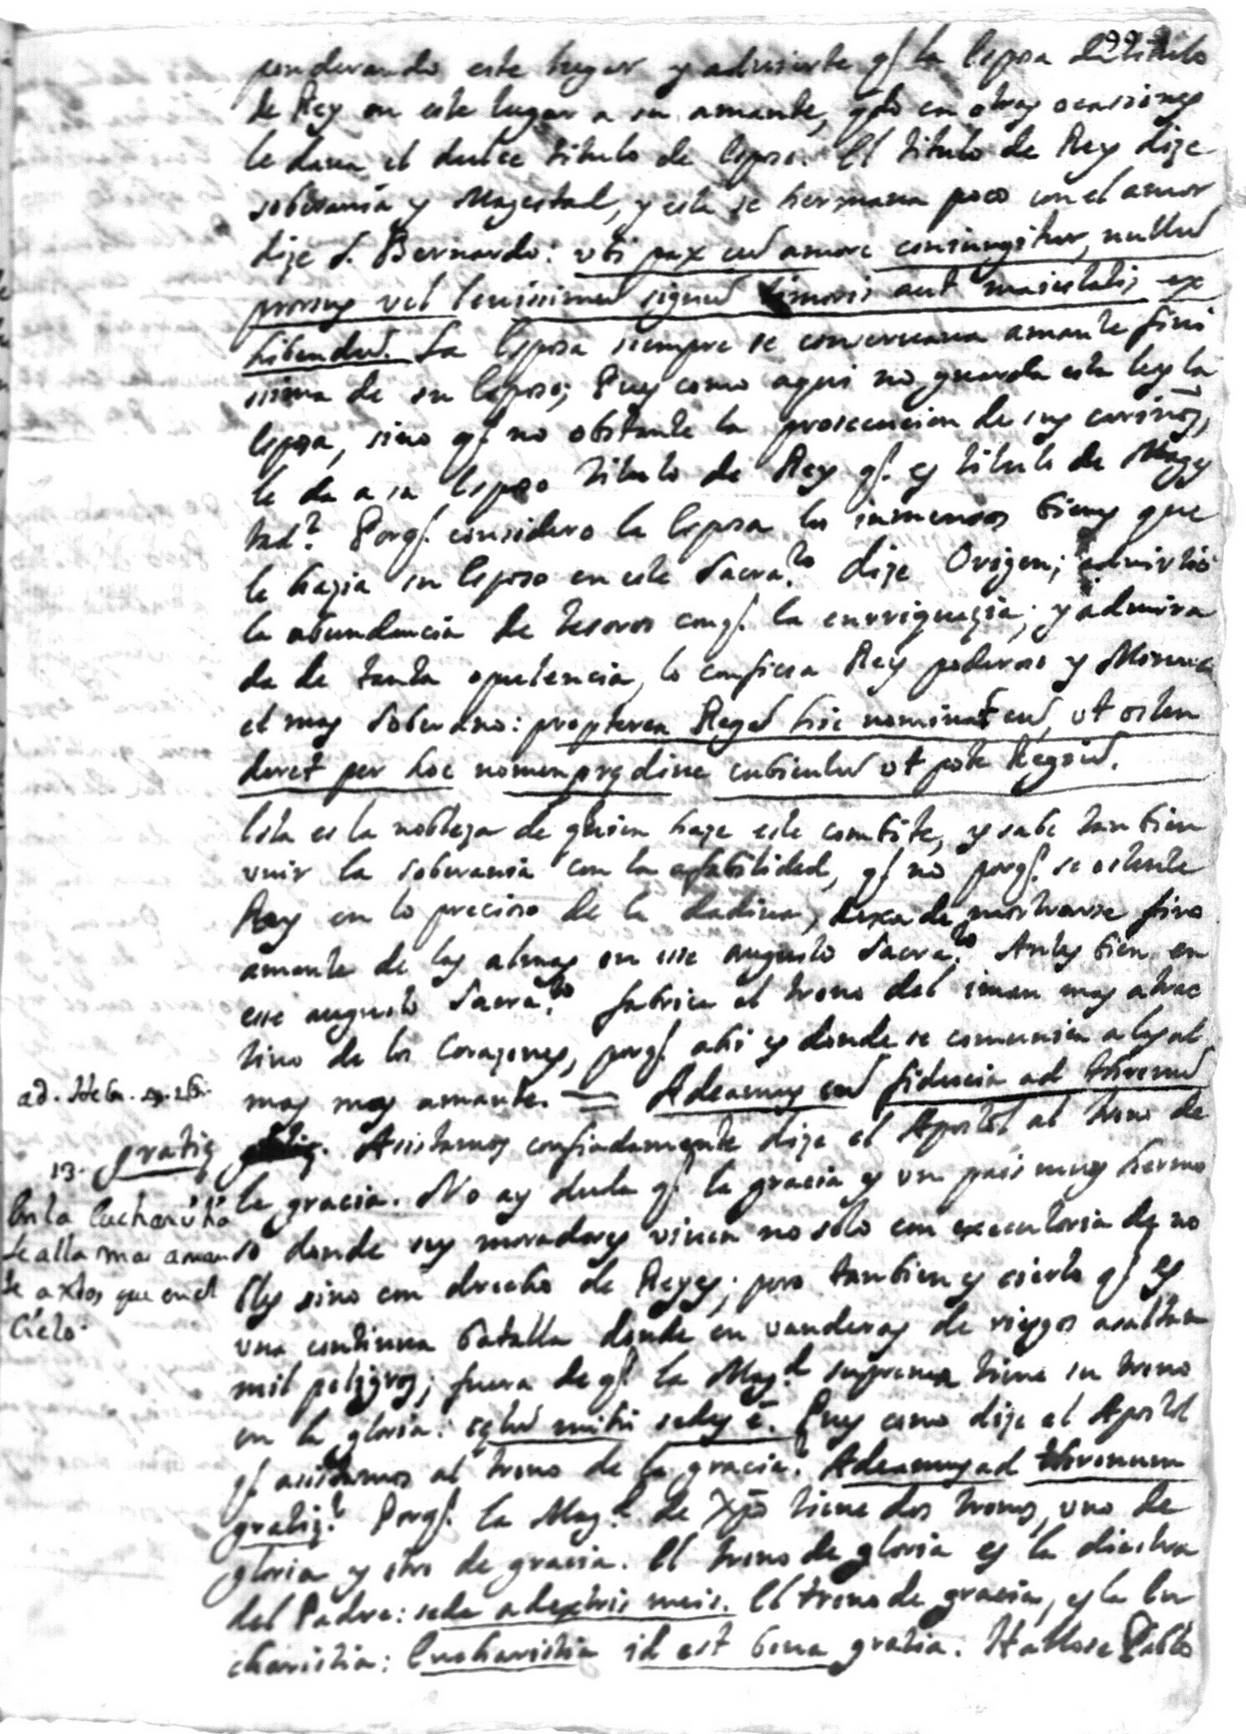 99
ponderando este lugar y advierte q̃ la esposa da titulo
de Rey en este lugar a su amante, qdo en otras ocasiones
le dava el dulce titulo de esposo. El titulo de Rey dize
soberania y Magestad, y esta se hermana poco con el amor
dize S. Bernardo: ubi pax cũ amore coniungitur, nullũ
prorsus vel levissimũ signũ timoris aut maiestatis ex
hibendũ. La esposa siempre se conservava amante fini
ssima de su esposo; Pues como aqui no guarda esta ley la
esposa, sino q̃ no obstante la prosecucion de sus cariños,
le da a su esposo titulo de Rey q̃ es titulo de Mages
tad? Porq̃ considero la esposa los inmensos bienes que
le hazia su esposo en este Sacra.to dize Origen; advirtió
la abundancia de tesoros conq̃ la enrriquezia; y admira
da de tanta opulencia, lo confiesa Rey poderoso y Monarca
el mas soberano: propterea Regẽ hic nominat eũ, ut osten
deret per hoc nomen prędives cubiculũ ut pote Regiũ.
Esta es la nobleza de quien haze este combite, y sabe tambien
vnir la soberania con la afabilidad, q̃ no porq̃ se ostente
Rey en lo precioso de la dadiva, dexa de mostrarse fino
amante de las almas en esse augusto Sacra.to Antes bien en
esse augusto Sacra.to fabrica el trono del iman mas atrac
tivo de los Corazones, porq̃ ahi es donde se comunica a las al
mas mas amante. = Adeamus cũ fiducia ad thronũ
ad. Heb.
gratię. Asistamos confiadamente dize el Apostol al trono de
13.
la gracia. No ay duda q̃ la gracia es un pais muy hermo
En la Eucharistia
so donde sus moradores viven no solo con executoria de no
se alla mas aman
te a xtos que en el
Cielo.
bles sino con derecho de Reyes; pero tambien es cierto q̃ es
una continua batalla donde en vanderas de riesgos asaltan
mil peligros; fuera de q̃ la Mag.d suprema tiene su trono
en la gloria: cęlũ mihi sedes ẽ. Pues como dize el Apostol
q̃ asistamos al trono de la gracia? Adeamus ad thronum
gratię? Porq̃ la Mag.d de Xp̃o tiene dos tronos, uno de
gloria y otro de gracia. El trono de gloria es la diestra
del Padre: sede a dextris meis. El trono de gracia, es la Eu
charistia: Eucharistia id est bona gratia. Hallose Pablo